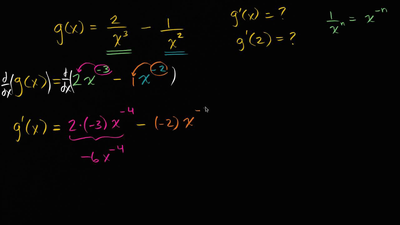 g(x) = 2/x³ − 1/x²
g'(x) = ?
g'(2) = ?
1/xⁿ = x⁻ⁿ
d/dx(g(x)) = d/dx(2x⁻³ − 1x⁻²)
g'(x) = 2·(-3)x⁻⁴ − (-2)x⁻
-6x⁻⁴